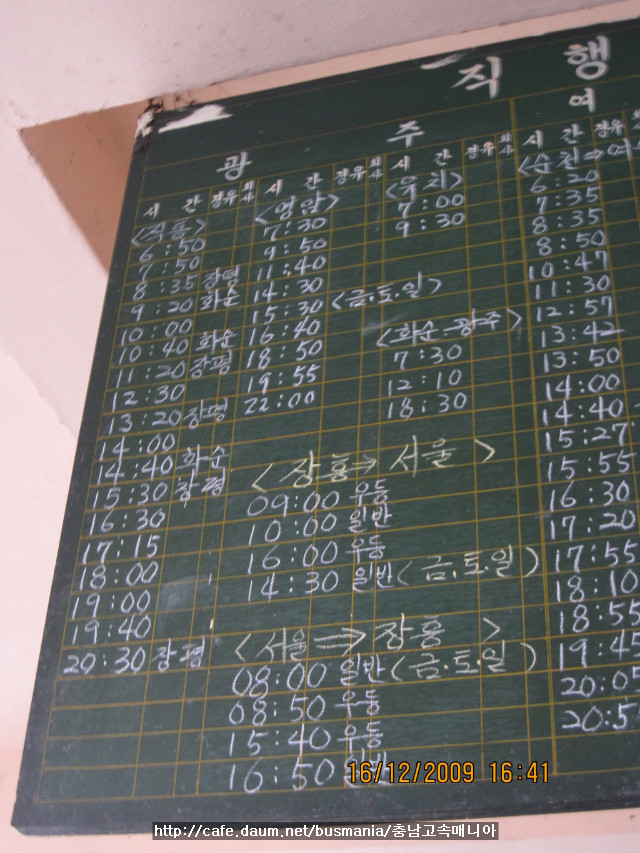 직행
광 주
여
시 간 경유 회사
<직통>
6:50
7:50
8:35 장평
9:20 화순
10:00
10:40 화순
11:20 장평
12:30
13:20 장평
14:00
14:40 화순
15:30 장평
16:30
17:15
18:00
19:00
19:40
20:30 장평
시 간 경유 회사
<영암>
7:30
9:50
11:40
14:30
15:30 <금.토.일>
16:40
18:50
19:55
22:00
시 간 경유 회사
<유치>
7:00
9:30
<화순-광주>
7:30
12:10
18:30
<장흥⇒서울>
09:00 우등
10:00 일반
16:00 우등
14:30 일반(금.토.일)
<서울⇒장흥>
08:00 일반(금.토.일)
08:50 우등
15:40 우등
16:50 일반
시 간 경유
<순천⇒여
6:20
7:35
8:35
8:50
10:47
11:30
12:57
13:42
13:50
14:00
14:40
15:27
15:55
16:30
17:20
17:55
18:10
18:55
19:45
20:05
20:5
16/12/2009 16:41
http://cafe.daum.net/busmania/충남고속매니아